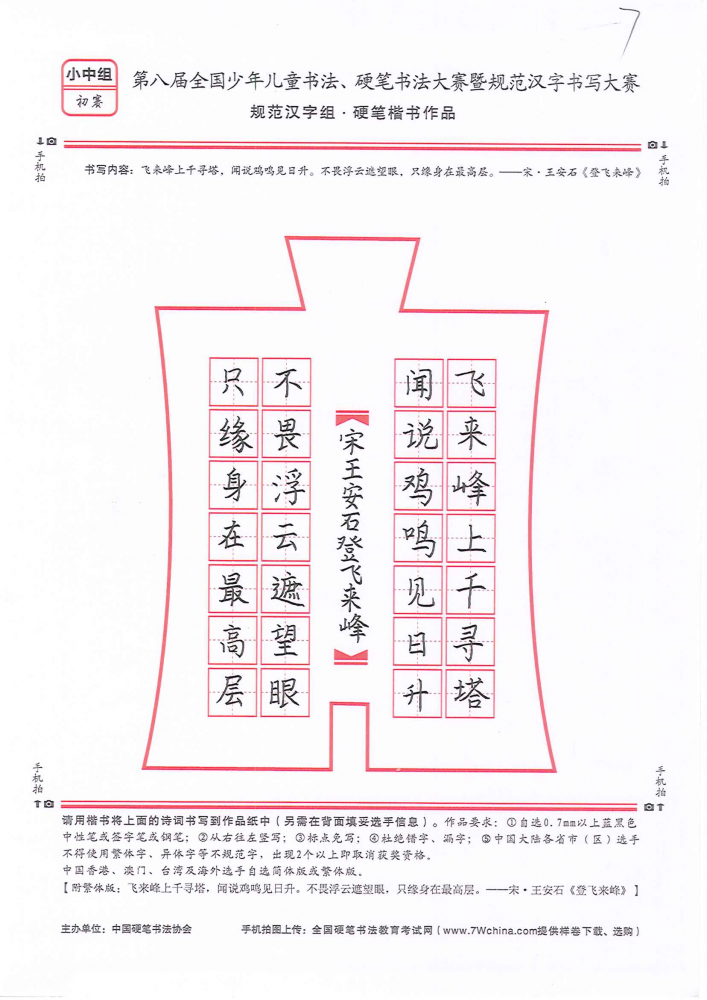 7
小中组
初赛
第八届全国少年儿童书法、硬笔书法大赛暨规范汉字书写大赛
规范汉字组·硬笔楷书作品
手机拍
手机拍
书写内容：飞来峰上千寻塔，闻说鸡鸣见日升。不畏浮云遮望眼，只缘身在最高层。——宋·王安石《登飞来峰》
飞来峰上千寻塔
闻说鸡鸣见日升
宋王安石登飞来峰
不畏浮云遮望眼
只缘身在最高层
手机拍
手机拍
请用楷书将上面的诗词书写到作品纸中（另需在背面填妥选手信息）。作品要求：①自选0.7mm以上蓝黑色
中性笔或签字笔或钢笔；②从右往左竖写；③标点免写；④杜绝错字、漏字；⑤中国大陆各省市（区）选手
不得使用繁体字、异体字等不规范字，出现2个以上即取消获奖资格。
中国香港、澳门、台湾及海外选手自选简体版或繁体版。
【附繁体版：飞来峰上千寻塔，闻说鸡鸣见日升。不畏浮云遮望眼，只缘身在最高层。——宋·王安石《登飞来峰》】
主办单位：中国硬笔书法协会 手机拍图上传：全国硬笔书法教育考试网（www.7Wchina.com提供样卷下载、选购）